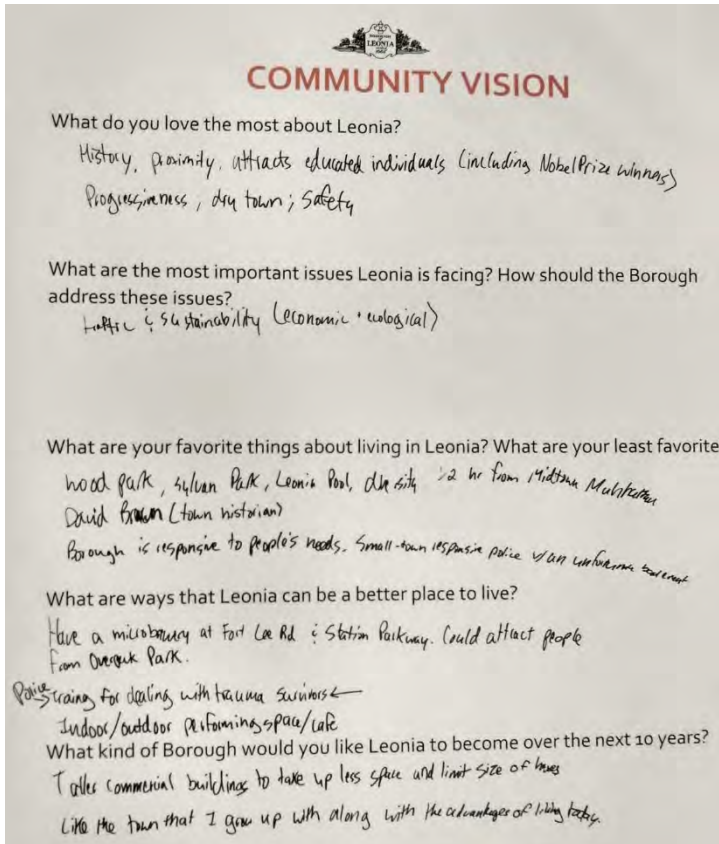 LEONIA
COMMUNITY VISION
What do you love the most about Leonia?
History, proximity, attracts educated individuals (including Nobel Prize winners)
Progressiveness, dry town; Safety
What are the most important issues Leonia is facing? How should the Borough
address these issues?
traffic & sustainability (economic + ecological)
What are your favorite things about living in Leonia? What are your least favorite
wood park, Sylvan Park, Leonia Pool, 1/2 hr from Midtown Manhattan
David Brown (town historian)
Borough is responsive to people's needs. Small-town responsive police w/an
What are ways that Leonia can be a better place to live?
Have a microbrewery at Fort Lee Rd & Station Parkway. Could attract people
from Overpeck Park.
Police training for dealing with trauma survivors
Indoor/outdoor performing space/cafe
What kind of Borough would you like Leonia to become over the next 10 years?
Taller commercial buildings to take up less space and limit size of
Like the town that I grew up with along with the advantages of living today.